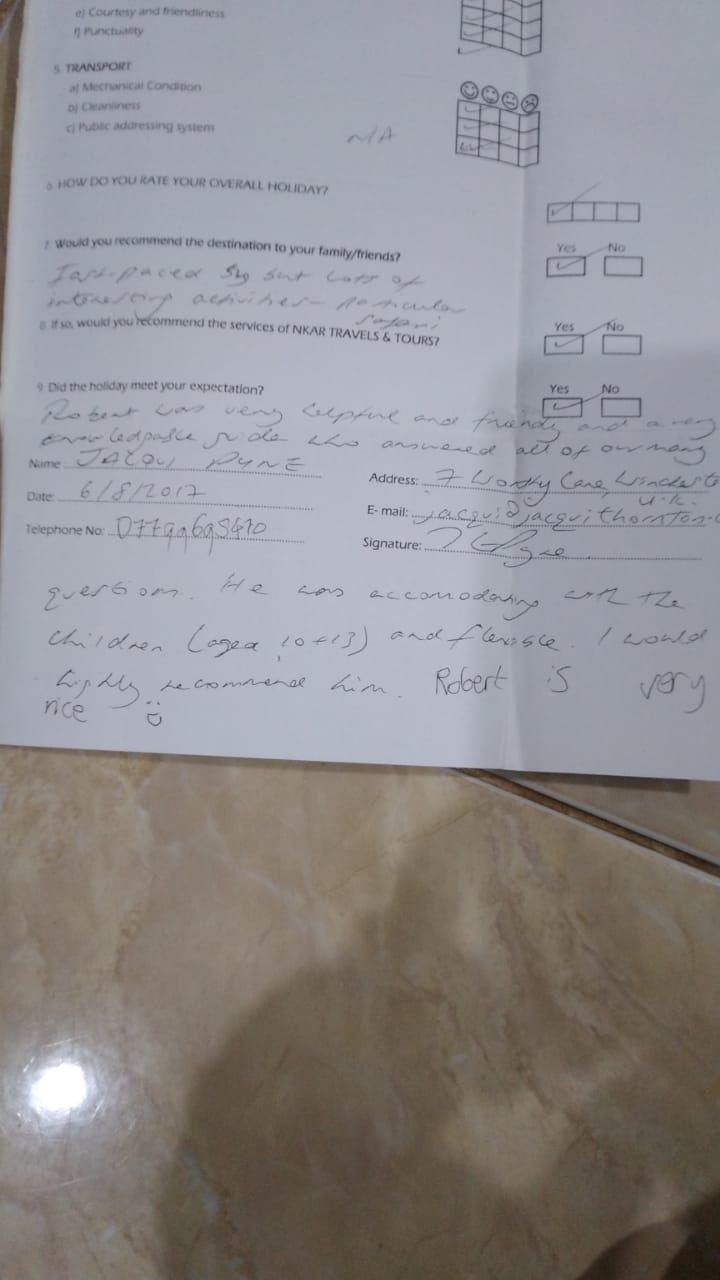 e) Courtesy and friendliness
f) Punctuality
5. TRANSPORT
a) Mechanical Condition
b) Cleanliness
c) Public addressing system
N/A
6. HOW DO YOU RATE YOUR OVERALL HOLIDAY?
7. Would you recommend the destination to your family/friends?
Yes No
Fast-paced but lots of
interesting activities - particular
safari
8. If so, would you recommend the services of NKAR TRAVELS & TOURS?
Yes No
9. Did the holiday meet your expectation?
Yes No
Robert was very helpful and friendly and a very
knowledgable guide who answered all of our many
Name: JACQUI PYNE
Address: 7 Worthy Lane, Winchester
U.K.
Date: 6/8/2017
E- mail: jacqui@jacquithornton.c
Telephone No:
Signature:
questions. He was accomodating with the
children (aged 10+13) and flexible. I would
highly recommend him. Robert is very
nice